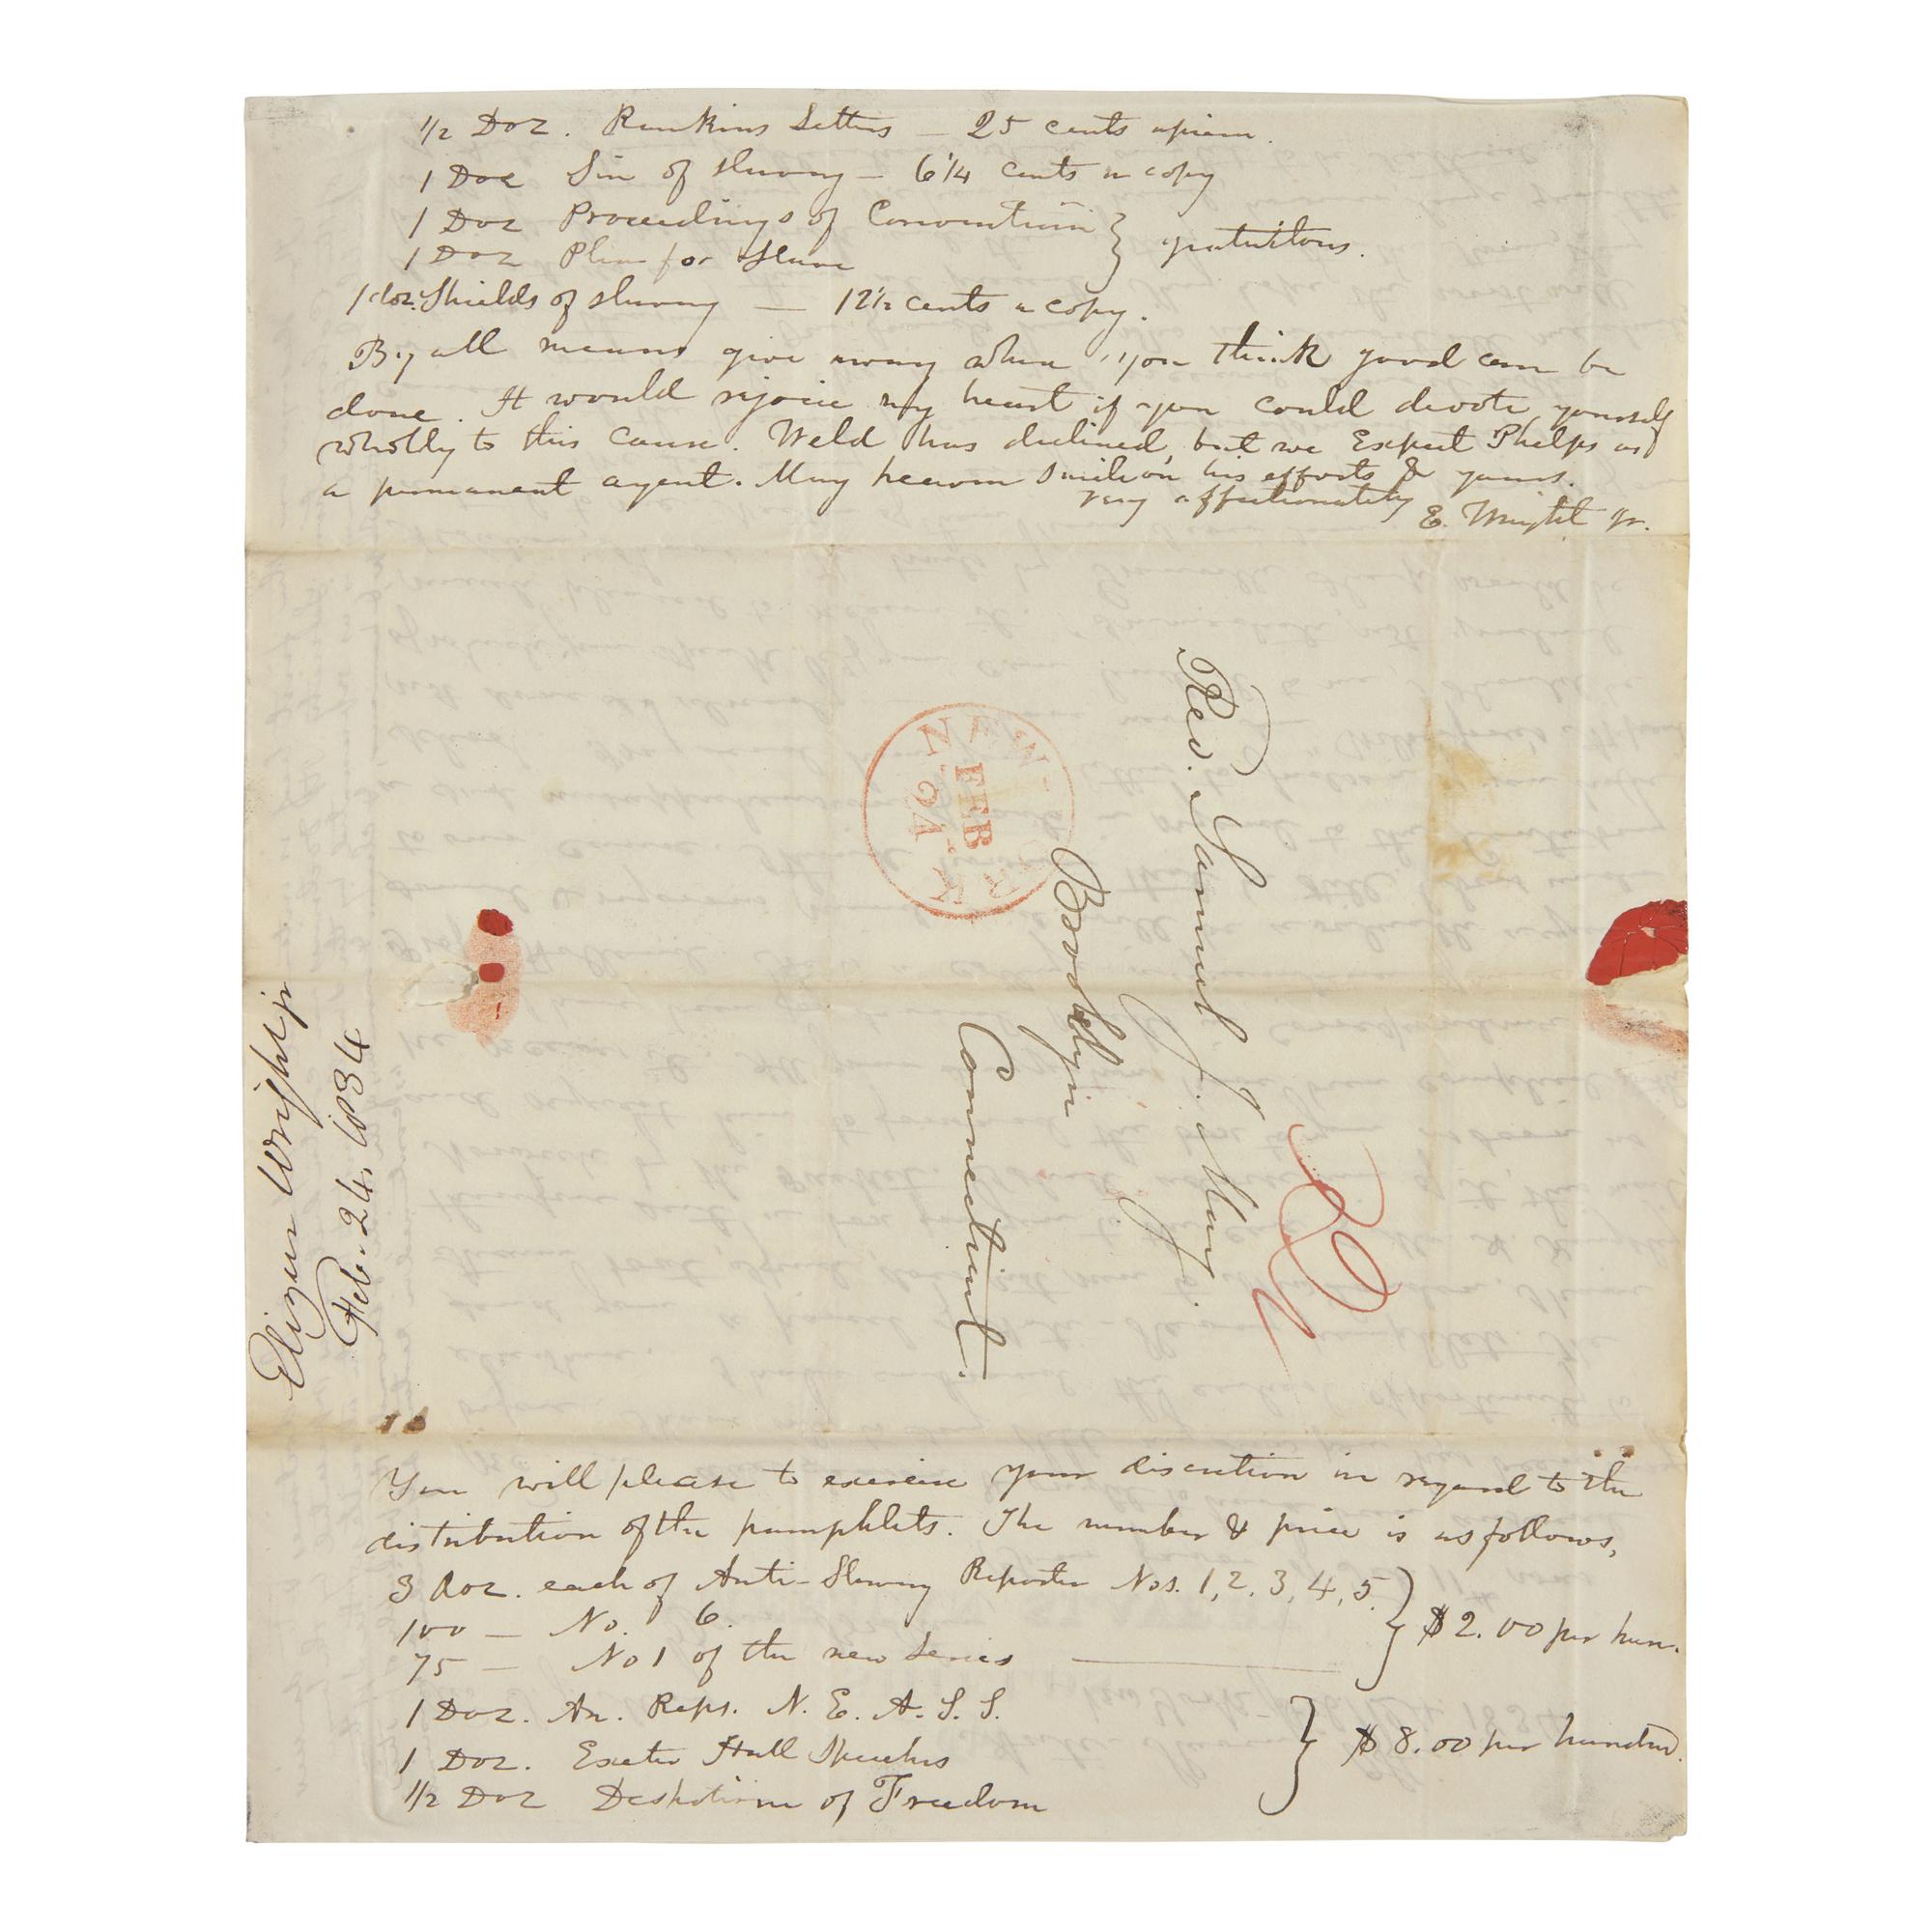 1/2 Doz. Rankins Letters — 25 cents apiece.
1 Doz Sin of Slavery — 6 1/4 cents a copy
1 Doz Proceedings of Convention } gratuitous.
1 Doz Plea for Slave
1 doz. Shields of slavery — 12 1/2 cents a copy.
By all means give away when you think good can be
done. It would rejoice my heart if you could devote yourself
wholly to this cause. Weld has declined, but we Expect Phelps as
a permanent agent. May heaven smile on his efforts & yours.
very affectionately
E. Wright Jr.
Rev. Samuel J. May
Brooklyn
Connecticut.
NEW-YORK
FEB
24
Elizur Wright jr
Feb. 24, 1834
You will please to exercise your discretion in regard to the
distribution of the pamphlets. The number & price is as follows,
3 doz. each of Anti-Slavery Reporter Nos. 1, 2, 3, 4, 5. } $2.00 per hun.
100 — No. 6.
75 — No 1 of the new Series —
1 Doz. An. Reps. N. E. A. S. S. } $8.00 per hundred.
1 Doz. Exeter Hall Speeches
1/2 Doz Despotism of Freedom